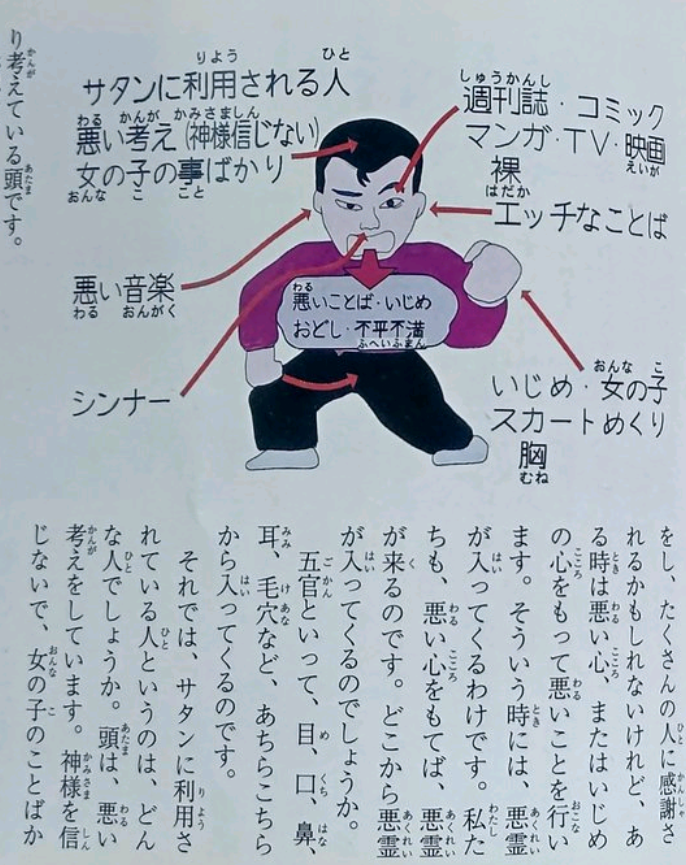 サタンに利用される人
悪い考え(神様信じない)
女の子の事ばかり
週刊誌・コミック
マンガ・TV・映画
裸
エッチなことば
悪い音楽
悪いことば・いじめ
おどし・不平不満
シンナー
いじめ・女の子
スカートめくり
胸
をし、たくさんの人に感謝さ
れるかもしれないけれど、あ
る時は悪い心、またはいじめ
の心をもって悪いことを行い
ます。そういう時には、悪霊
が入ってくるわけです。私た
ちも、悪い心をもてば、悪霊
が来るのです。どこから悪霊
が入ってくるのでしょうか。
五官といって、目、口、鼻、
耳、毛穴など、あちらこちら
から入ってくるのです。
それでは、サタンに利用さ
れている人というのは、どん
な人でしょうか。頭は、悪い
考えをしています。神様を信
じないで、女の子のことばか
り考えている頭です。